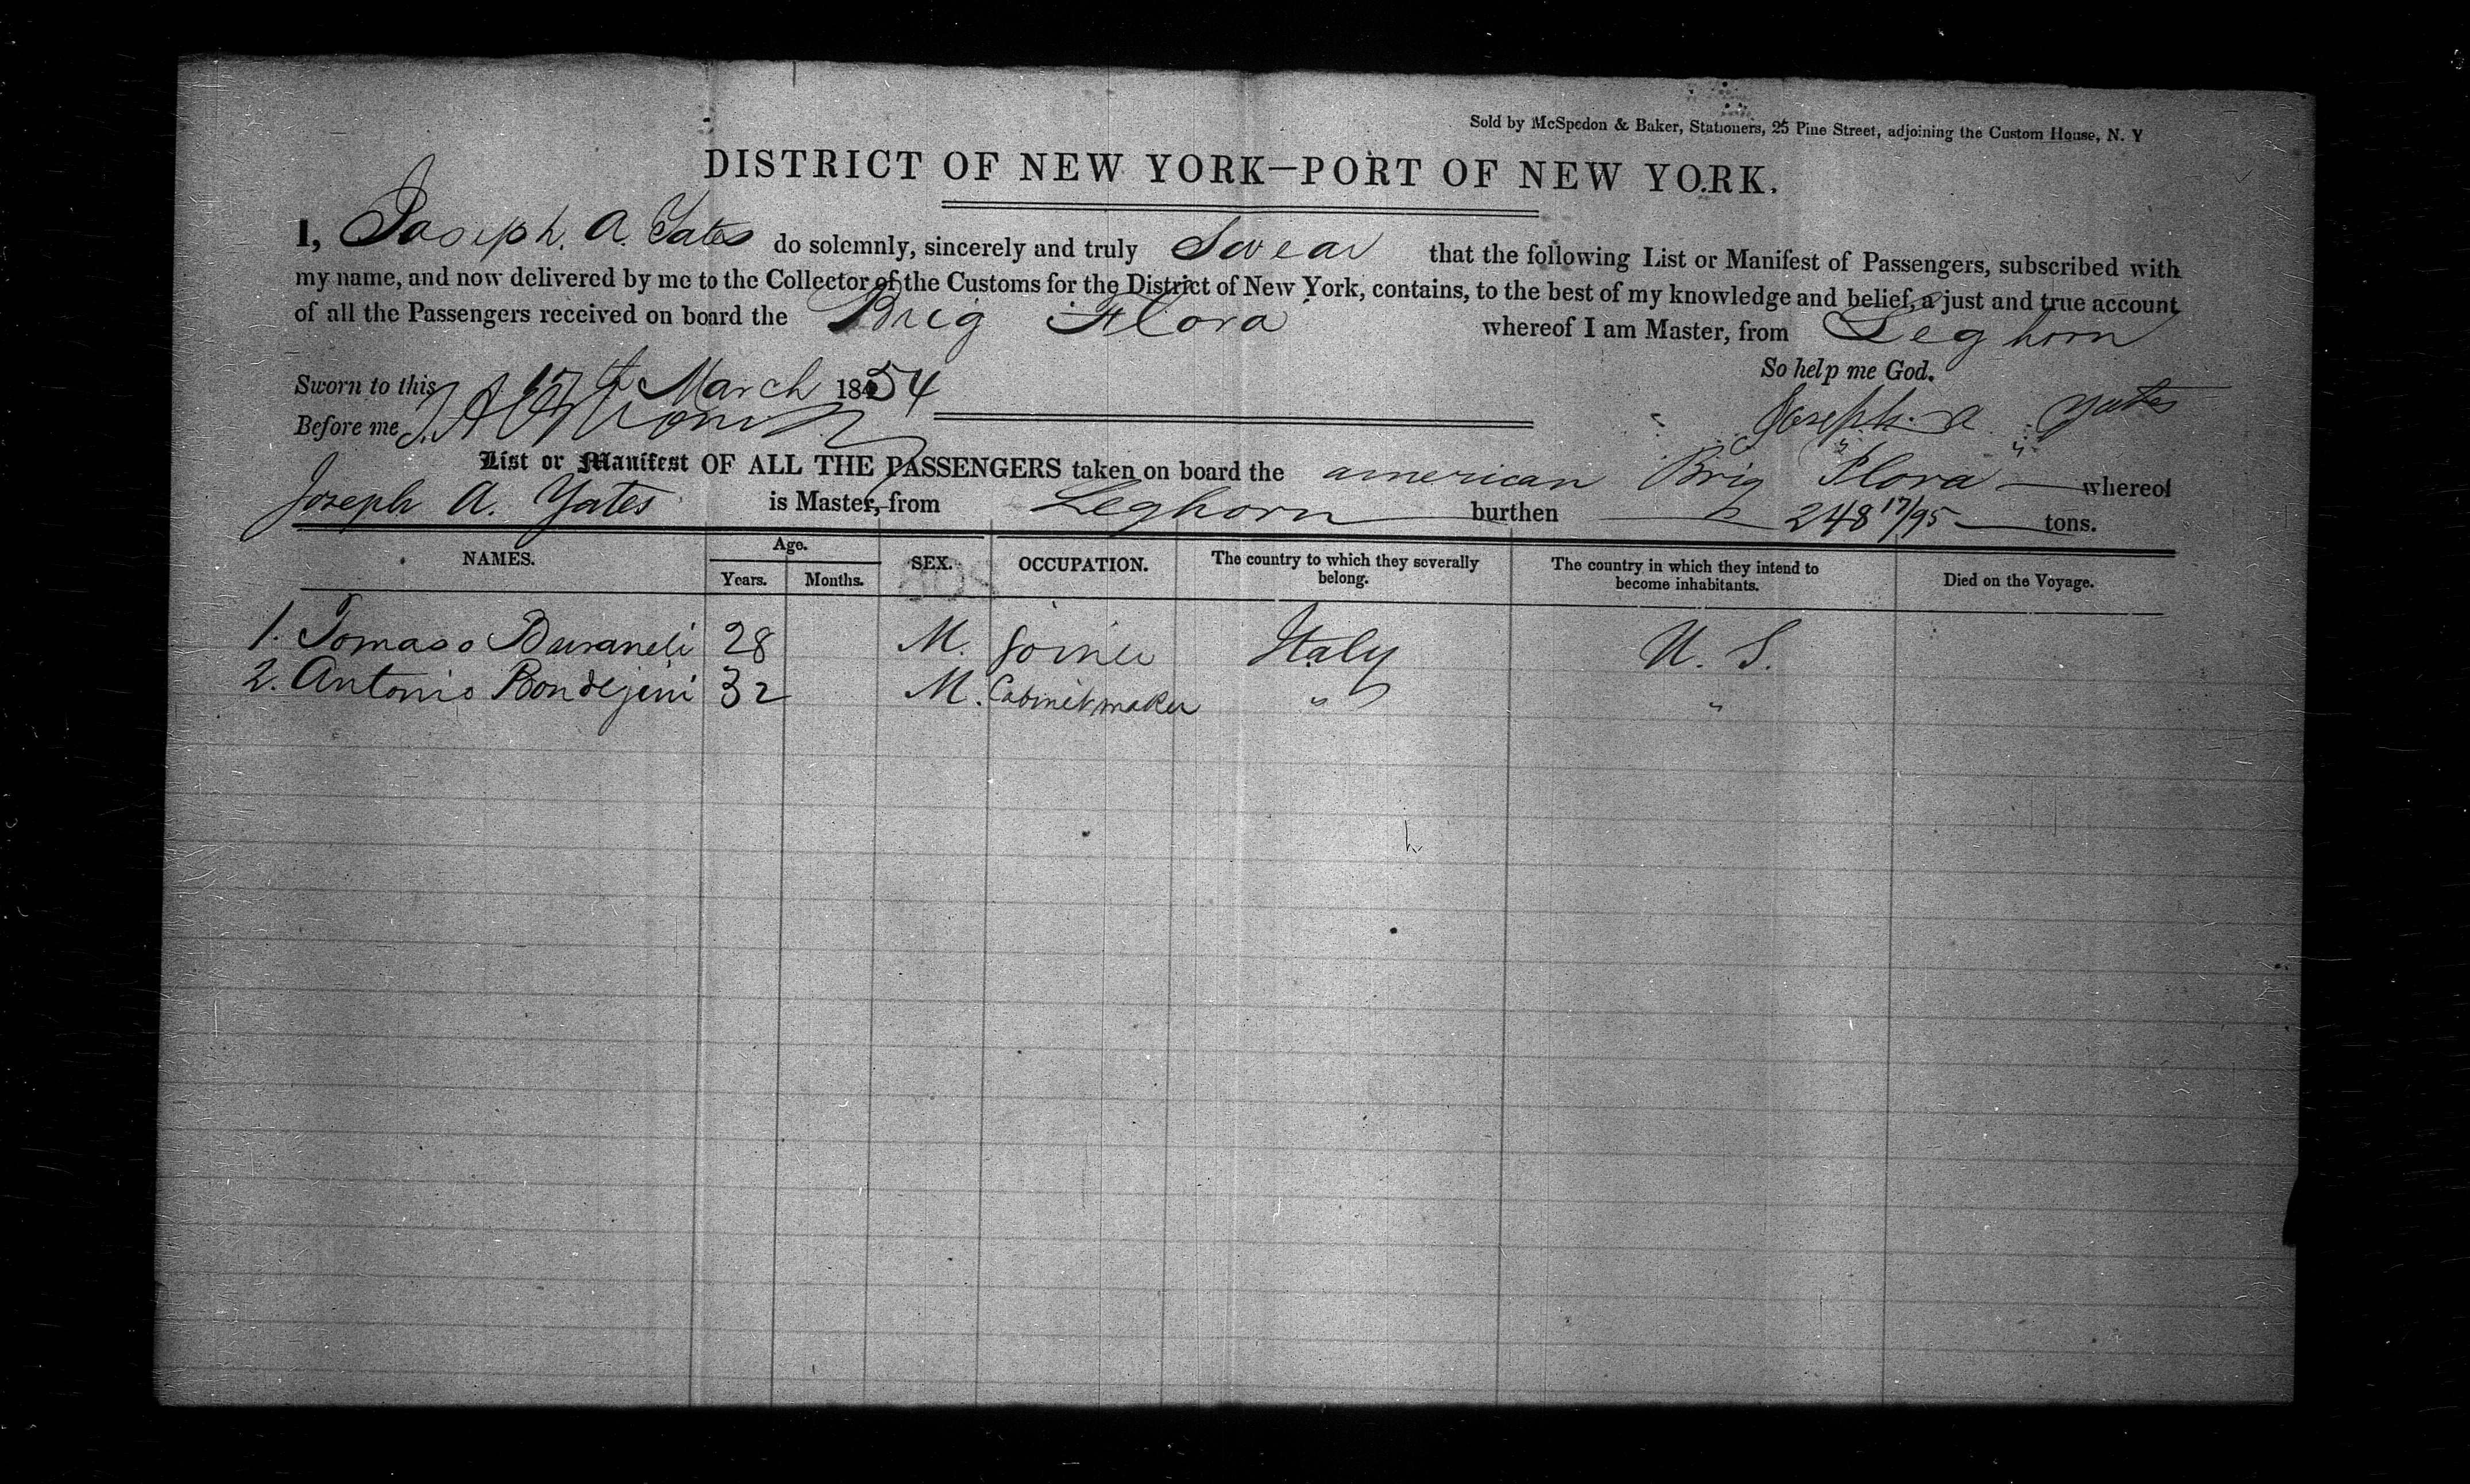 Sold by McSpedon & Baker, Stationers, 25 Pine Street, adjoining the Custom House, N. Y
DISTRICT OF NEW YORK—PORT OF NEW YORK.
I, Joseph. A. Yates do solemnly, sincerely and truly Swear that the following List or Manifest of Passengers, subscribed with
my name, and now delivered by me to the Collector of the Customs for the District of New York, contains, to the best of my knowledge and belief, a just and true account
of all the Passengers received on board the Brig Flora whereof I am Master, from Leghorn
So help me God.
Sworn to this 17th March 1854
Joseph. A Yates
Before me
List or Manifest OF ALL THE PASSENGERS taken on board the american Brig "Flora" whereof
Joseph A. Yates is Master, from Leghorn burthen 248 17/95 tons.
NAMES. Age. Years. Months. SEX. OCCUPATION. The country to which they severally belong. The country in which they intend to become inhabitants. Died on the Voyage.
1. Tomaso 28 M. Joiner Italy U. S.
2. Antonio 32 M. Cabinetmaker " "